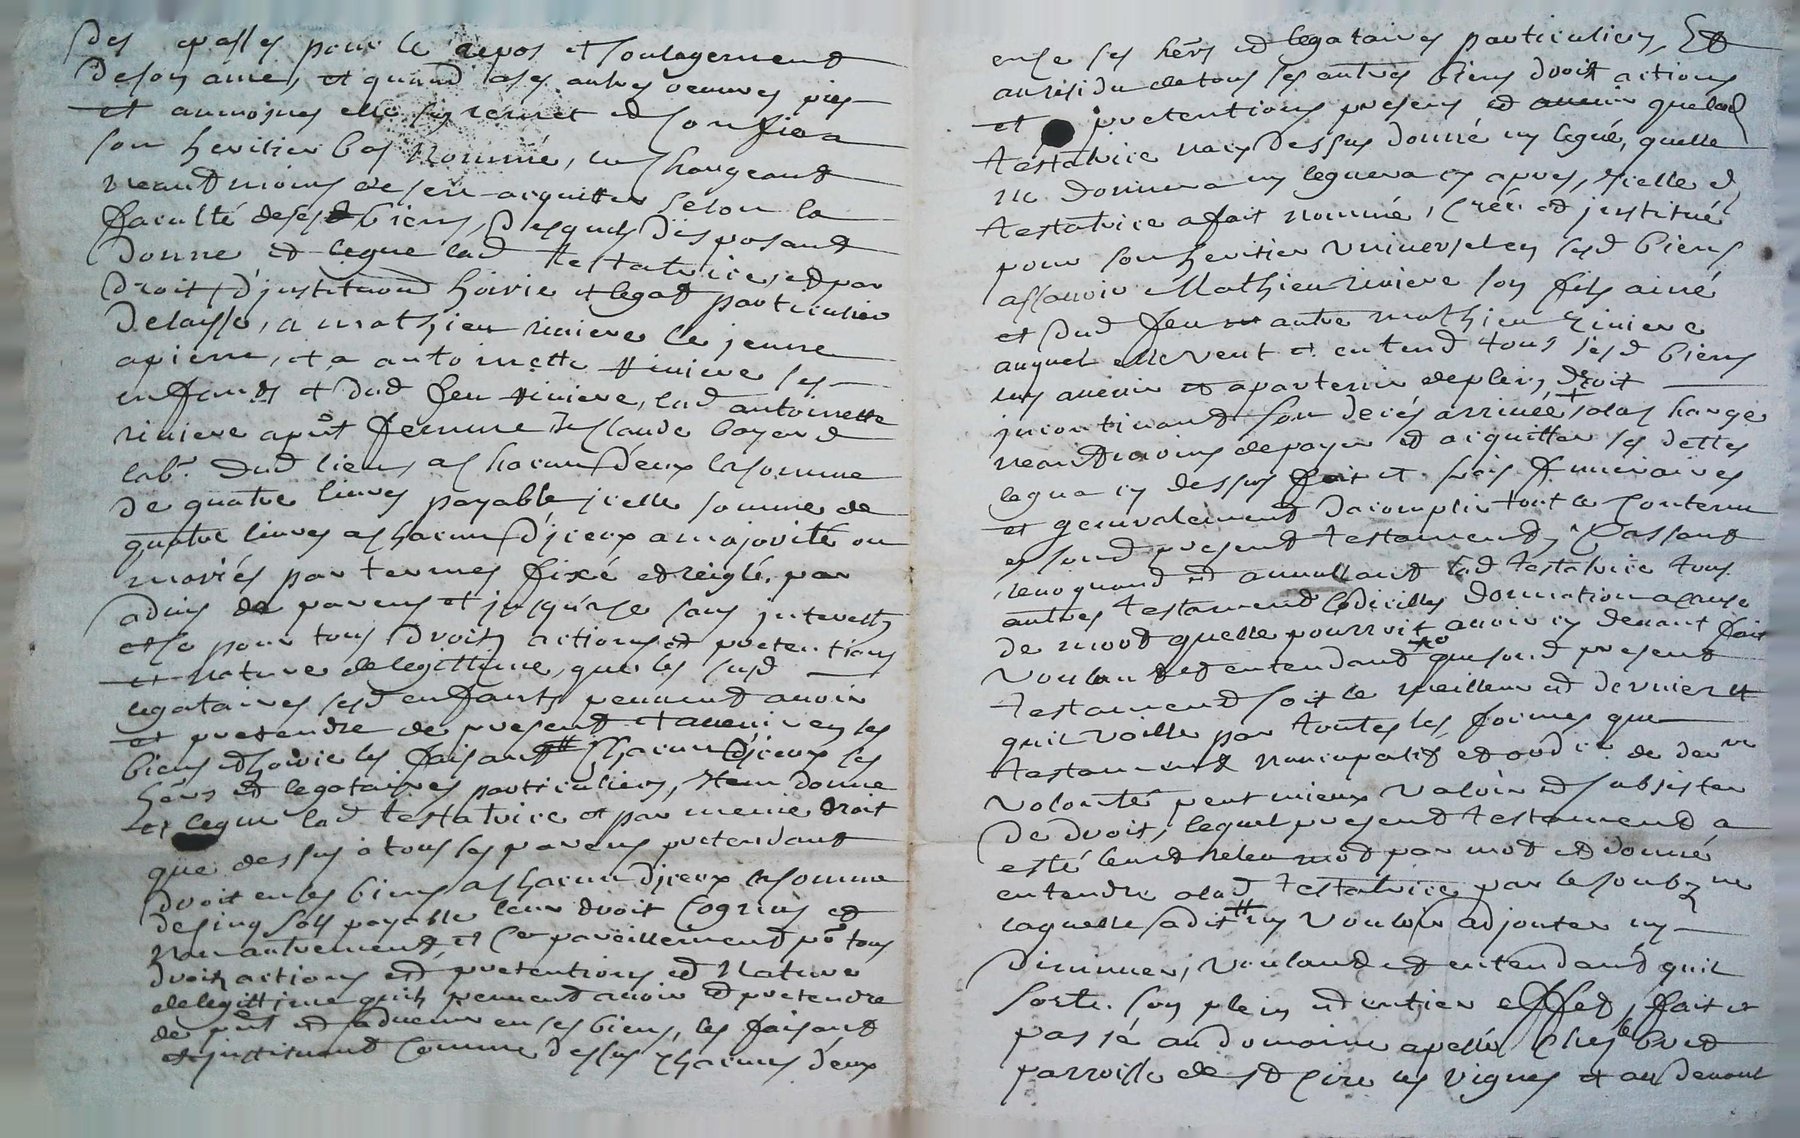 des messes pour le repos et soulagement
de son ame, et quand a ses autres oeuvres pies
et aumosnes elle sen remet et confie a
son heritier bas nommé, en chargeant
neantmoins de sen acquitter selon la
faculté de ses biens, desquels disposant
donne et legue lad testatrice, et par
droit d'jnstitution hoirie et legat particulier
delaisse, a mathieu riviere le jeune
a pierre, et a antoinette riviere ses
enfants et dud feu riviere, lad antoinette
riviere apnt femme de Claude boyer
labr dud lieu, a chacun d'eux la somme
de quatre livres payable jcelle somme de
quatre livres a chacun d'jceux a majorité ou
mariés par termes fixé et reiglé, par
advis de parens et jusqu'a ce sans jnterests
et ce pour tous droits actions et pretentions
et nature de legittime, que les susd
legataires sesd enfants peuvent avoir
et pretendre de present et avenir en ses
biens et hoirie les faisant chacun d'jceux ses
hers et legataires particuliers, Item donne
et legue lad testatrice et par meme droit
que dessus a tous ses parens pretendant
droit en ses biens a chacun d'jceux la somme
de sinq sols payable leur droit Cogneu et
non autrement, et Ce pareillement po tous
droits actions et pretentions et nature
de legittime quils peuvent avoir et pretendre
de pnt et advenir en ses biens, les faisant
et jnstituant Comme dessus Chacuns d'eux
en ce ses hers et legataires particuliers, Et
au residu de tous ses autres biens droits actions
et pretentions presens et avenir que lad
testatrice na cy dessus donné ny legué, quelle
ne donnera ny leguera cy apres, jcelle d
testatrice a fait nommé, Créé et jnstitué
pour son heritier universel en sesd biens
assavoir Mathieu riviere son fils ainé
et dud feu autre mathieu riviere
auquel elle veut et entend tous sesd biens
luy avenir et apartenir de plein droit
jncontinant son decés arrivée a la charge
neantmoins de payer et acquitter ses dettes
legua cy dessus fait et frais funeraires
et generalement d'acomplir tout le Contenu
en sond present testament, Cassant
revoquand et annullant lad testatrice tous
autres testament Codicilles donnation a cause
de mort quelle pourroit avoir cy devant fait
voulant et entendant que sond present
testament soit le meilleur et dernier et
quil vaille par toutes les formes que
testament nuncupatif et ordre de derre
volonté peut mieux valoir et subsister
de droit, lequel present testament a
esté leu et releu mot par mot et donné
entendre a lad testatrice par le soubzne
laquelle a dit ny vouloir adjouter ny
diminuer, voulant et entendant quil
sorte son plein et entier effet, fait et
passé au domaine apellé Ches le bret
parroisse de st Cire les vignes et au devant